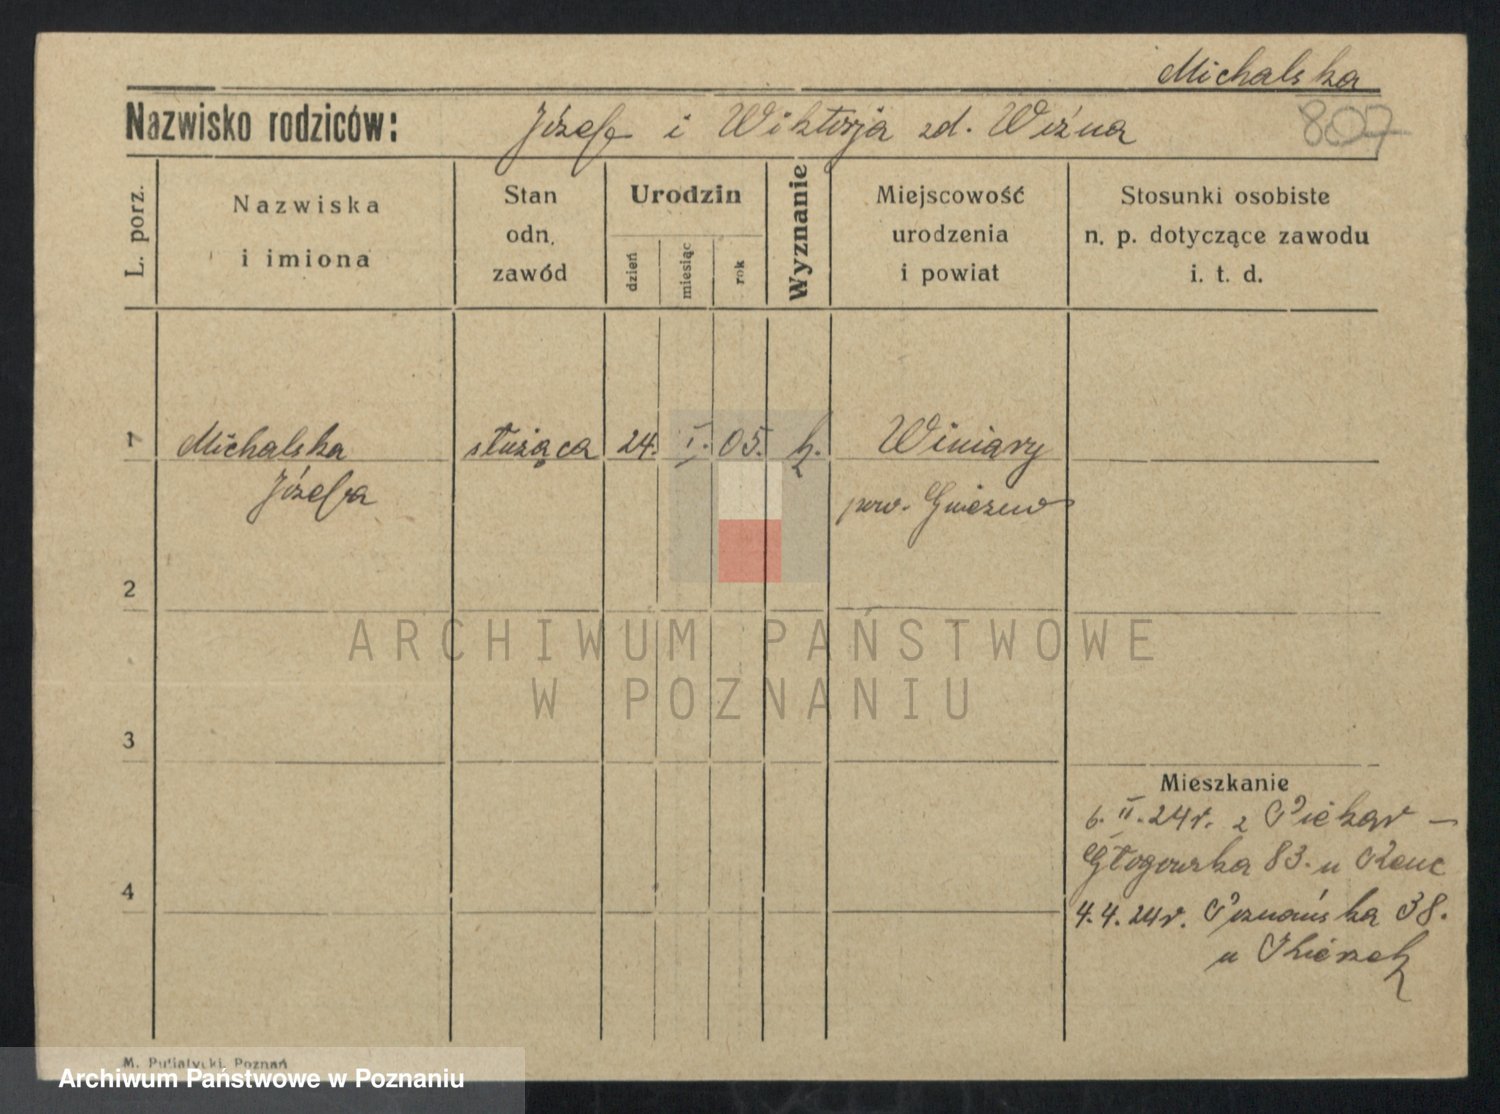 Michalska
Nazwisko rodziców: Józef i Wiktorja zd. Wiźna
807
L. porz.
Nazwiska
i imiona
Stan
odn.
zawód
Urodzin
dzień
miesiąc
rok
Wyznanie
Miejscowość
urodzenia
i powiat
Stosunki osobiste
n. p. dotyczące zawodu
i. t. d.
1 Michalska służąca 24. I. 05. k. Winiary
Józefa pow. Gniezno
2
ARCHIWUM PAŃSTWOWE
W POZNANIU
3
Mieszkanie
6. II. 24r. z Piekar —
Głogowska 83. u
4
4.4.24r. Poznańska 38.
u
M. Putiatycki, Poznań
Archiwum Państwowe w Poznaniu